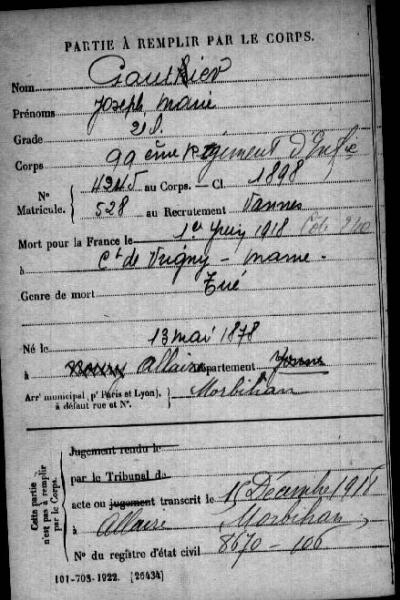 PARTIE À REMPLIR PAR LE CORPS.
Nom Gauthier
Prénoms Joseph Marie
Grade 2 S.
Corps 99ème Régiment d'Infie
No Matricule. 4245 au Corps. — Cl. 1898
528 au Recrutement Vannes
Mort pour la France le 1er Juin 1918
à Ct de Vrigny - Marne -
Genre de mort Tué
Né le 13 mai 1878
à Allaire Département Yonne
Arrt municipal (pr Paris et Lyon), à défaut rue et No. Morbihan
Cette partie n'est pas à remplir par le Corps.
Jugement rendu le
par le Tribunal de
acte ou jugement transcrit le 15 Décembre 1918
à Allaire Morbihan
No du registre d'état civil 8670 - 106
101-708-1922. [26434]